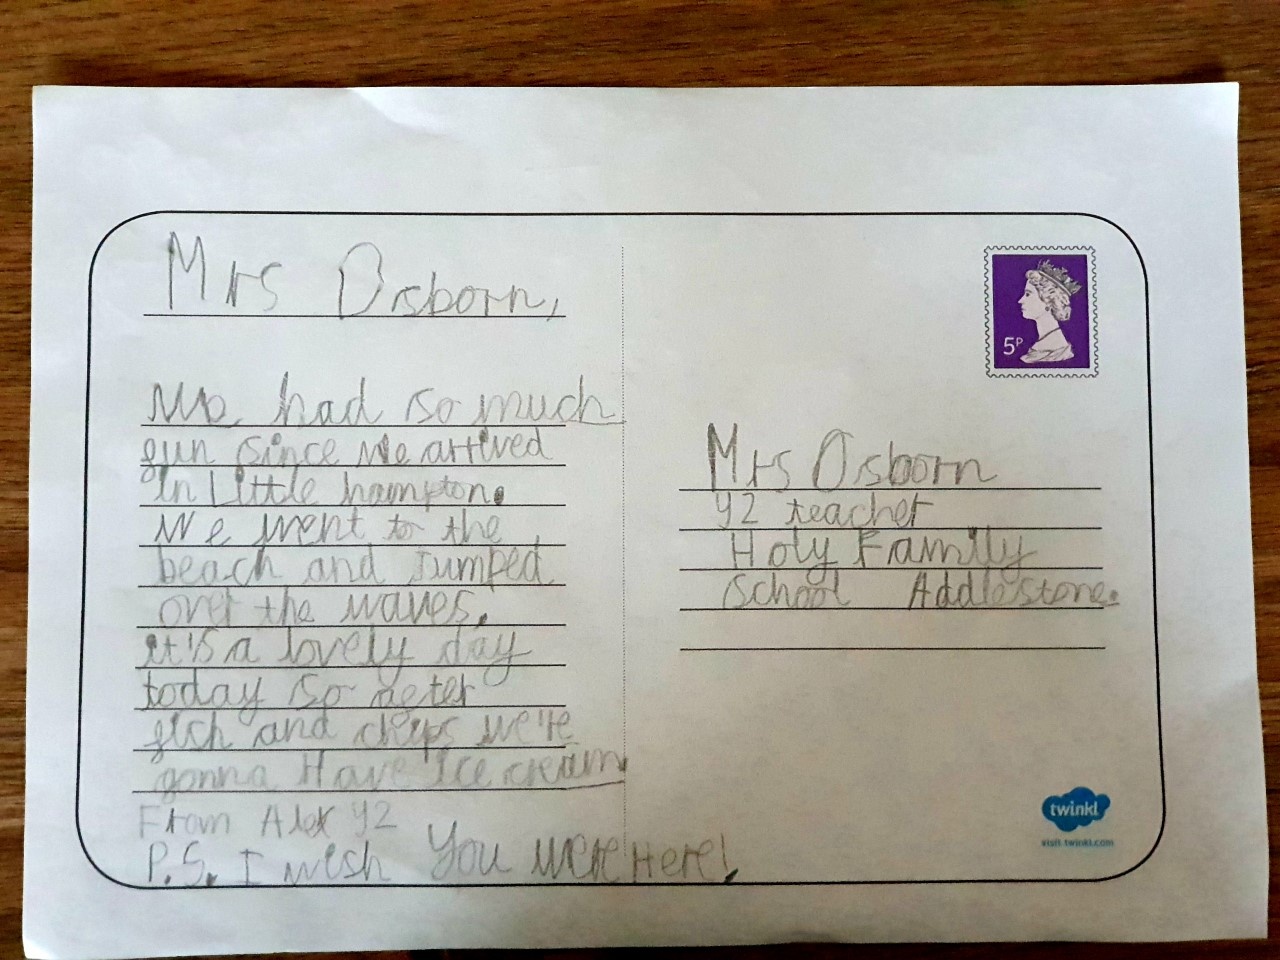 Mrs Osborn,
We had so much
fun since we arrived
in Little hampton.
We went to the
beach and Jumped
over the waves.
it's a lovely day
today so after
fish and chips we're
gonna Have Ice cream
From Alex Y2
P.S. I wish You were Here!
5P
Mrs Osborn
Y2 teacher
Holy Family
School Addlestone.
twinkl
visit twinkl.com